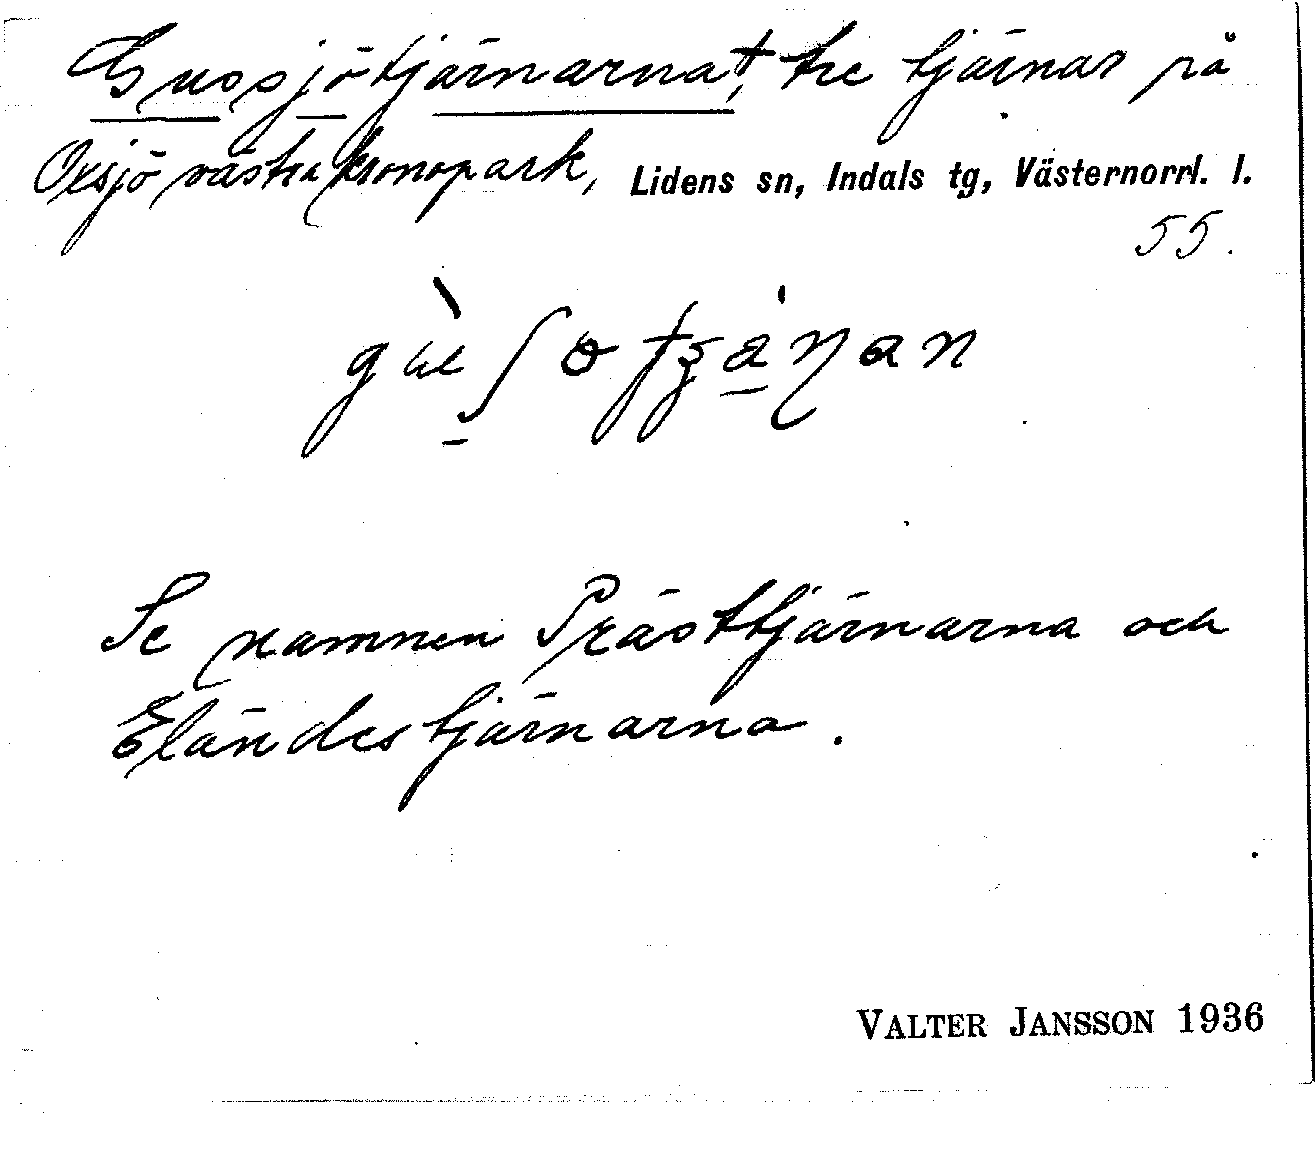 Gussjötjärnarna†, tre tjärnar på
Oxsjö västra kronopark, Lidens sn, Indals tg, Västernorrl. l.
55.
Se namnen Prästtjärnarna och
Eländestjärnarna.
VALTER JANSSON 1936